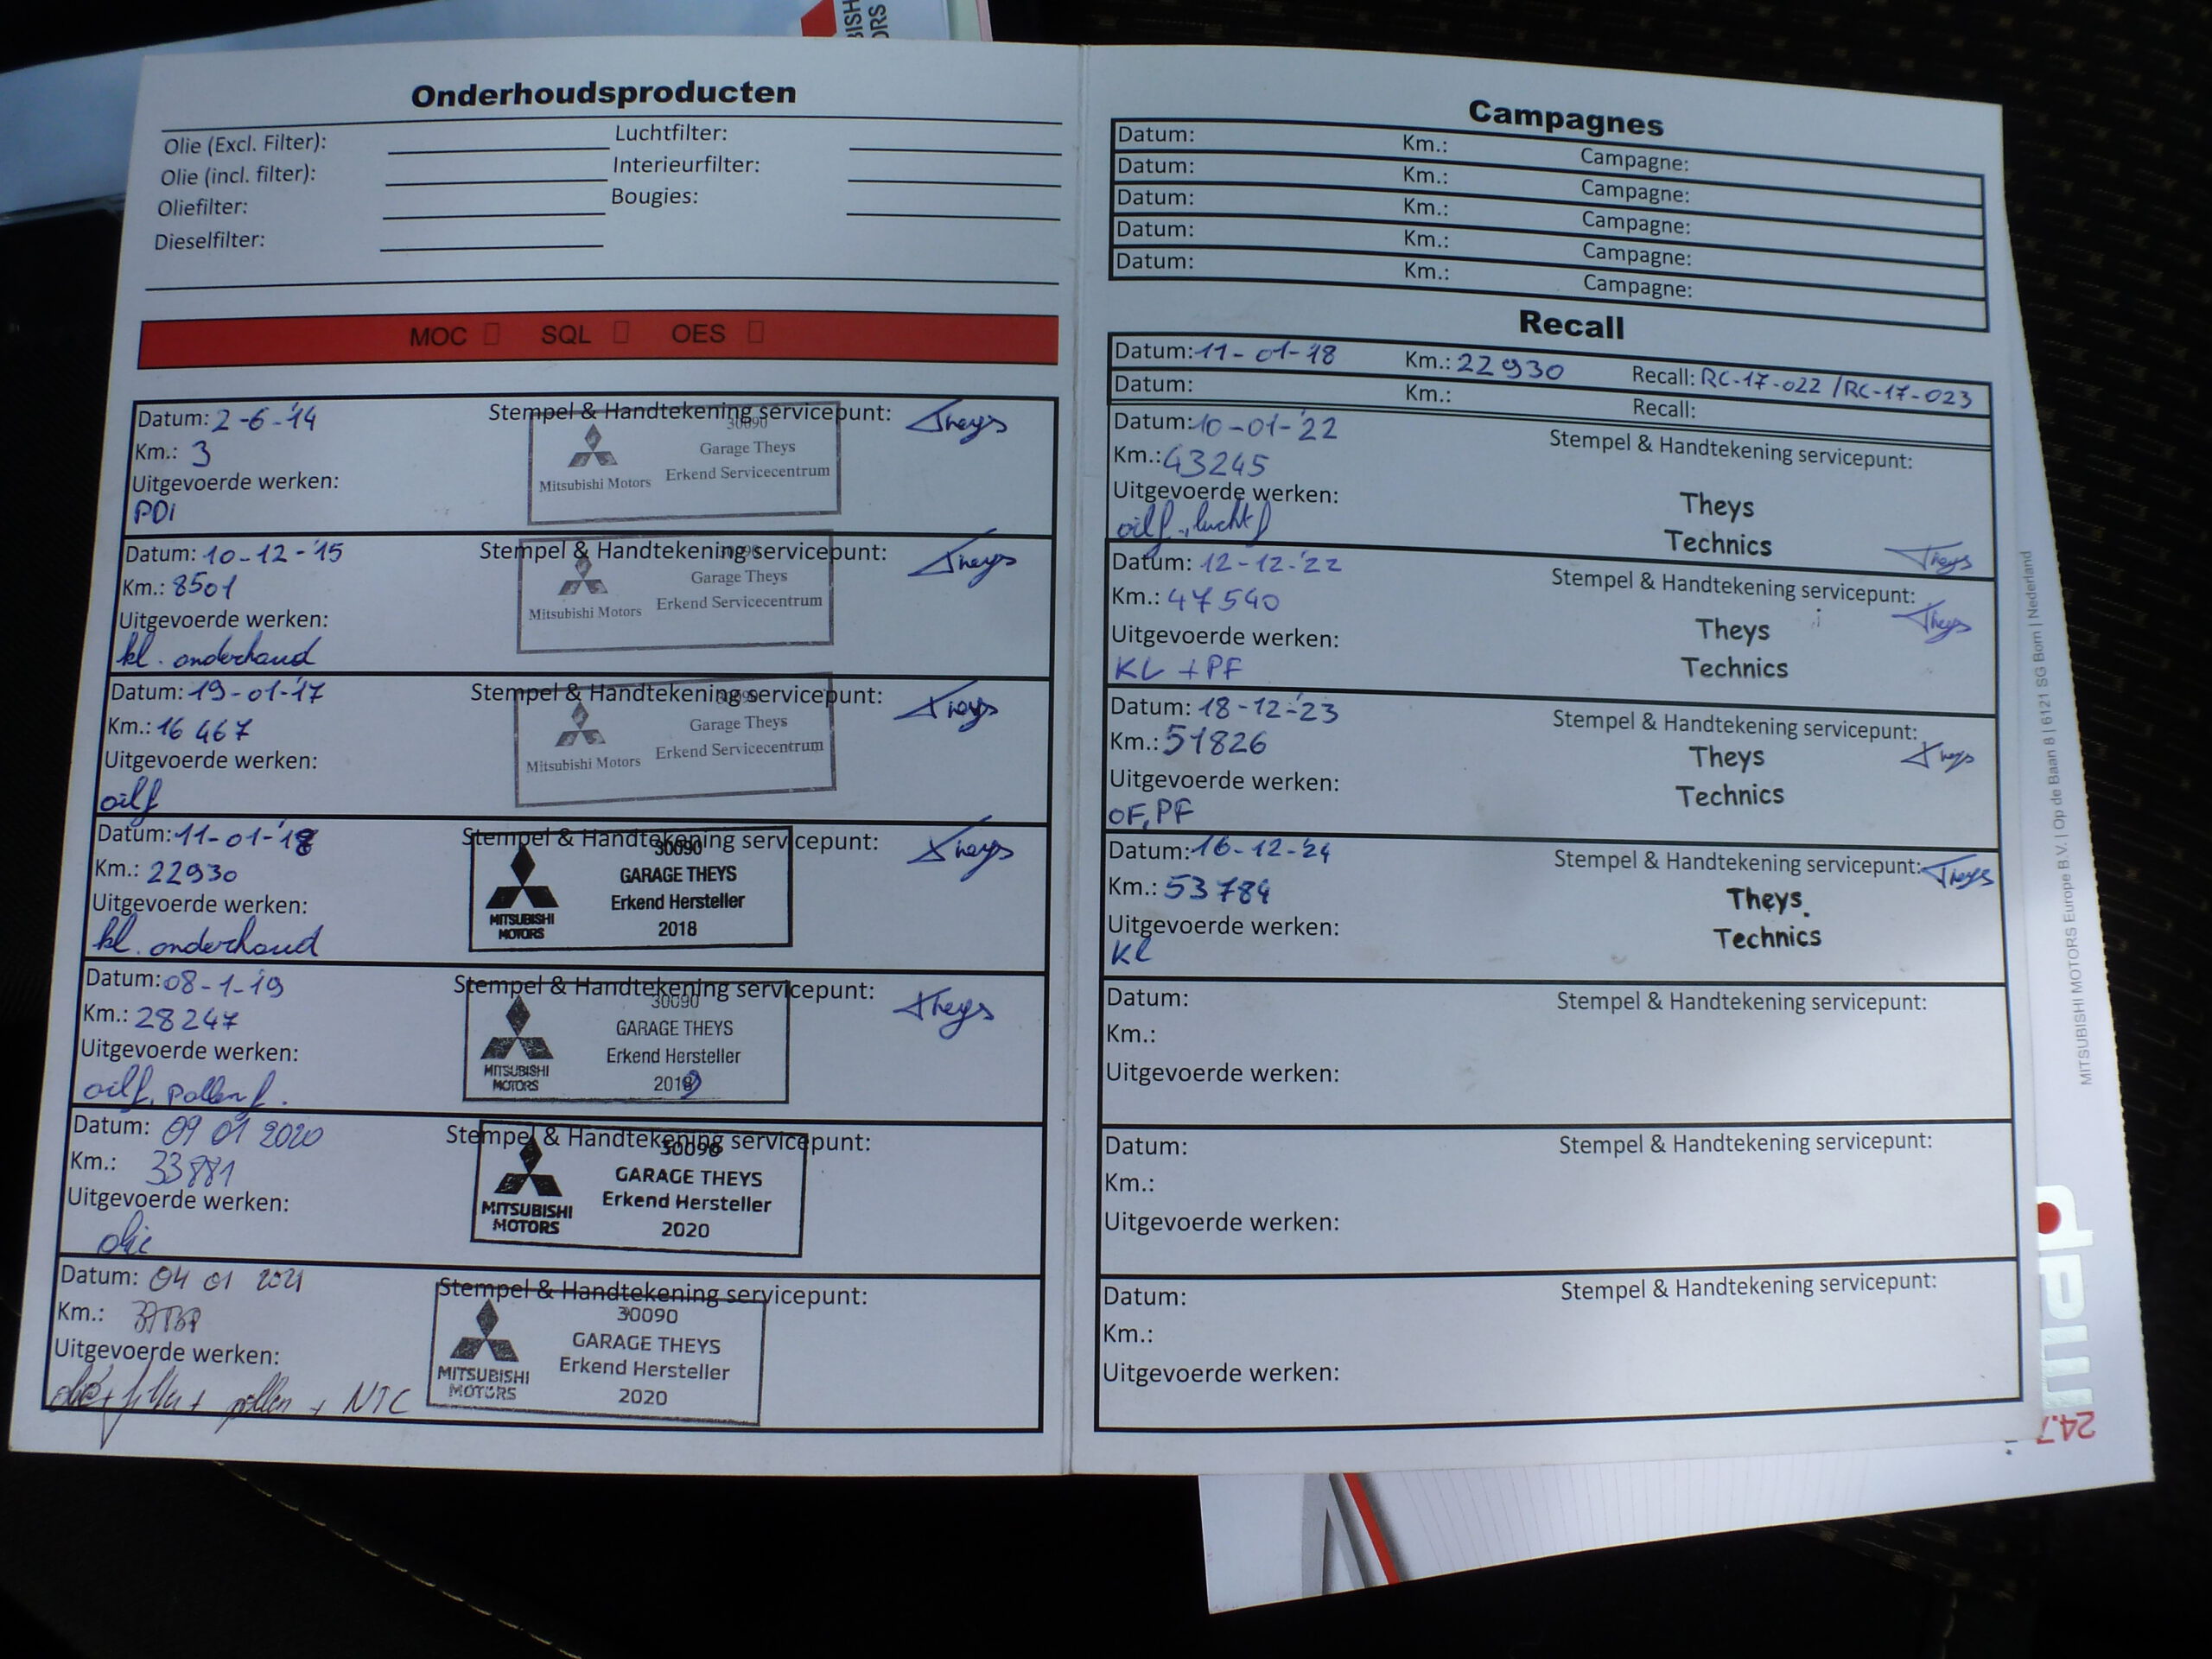 Onderhoudsproducten
Olie (Excl. Filter): Luchtfilter:
Olie (incl. filter): Interieurfilter:
Oliefilter: Bougies:
Dieselfilter:
MOC SQL OES
Datum: 2-6-'14 Stempel & Handtekening servicepunt: Theys
30090
Km.: 3 Garage Theys
Mitsubishi Motors Erkend Servicecentrum
Uitgevoerde werken:
PDi
Datum: 10-12-'15 Stempel & Handtekening servicepunt: Theys
Km.: 8501 Garage Theys
Mitsubishi Motors Erkend Servicecentrum
Uitgevoerde werken:
kl. onderhoud
Datum: 19-01-'17 Stempel & Handtekening servicepunt: Theys
Km.: 16 467 Garage Theys
Mitsubishi Motors Erkend Servicecentrum
Uitgevoerde werken:
oilf
Datum: 11-01-'18 Stempel & Handtekening servicepunt: Theys
30090
Km.: 22930 GARAGE THEYS
Erkend Hersteller
Uitgevoerde werken: MITSUBISHI MOTORS 2018
kl. onderhoud
Datum: 08-1-'19 Stempel & Handtekening servicepunt: Theys
30090
Km.: 28247 GARAGE THEYS
Erkend Hersteller
Uitgevoerde werken: MITSUBISHI MOTORS 2019
oilf, pollenf.
Datum: 09 01 2020 Stempel & Handtekening servicepunt:
30090
Km.: 33881 GARAGE THEYS
Erkend Hersteller
Uitgevoerde werken: MITSUBISHI MOTORS 2020
olie
Datum: 04 01 2021 Stempel & Handtekening servicepunt:
30090
Km.: GARAGE THEYS
Erkend Hersteller
Uitgevoerde werken: MITSUBISHI MOTORS 2020
olie + filter + pollen + NTC
Campagnes
Datum: Km.: Campagne:
Datum: Km.: Campagne:
Datum: Km.: Campagne:
Datum: Km.: Campagne:
Datum: Km.: Campagne:
Recall
Datum: 11-01-'18 Km.: 22930 Recall: RC-17-022 / RC-17-023
Datum: Km.: Recall:
Datum: 10-01-'22 Stempel & Handtekening servicepunt:
Km.: 43245
Uitgevoerde werken: Theys
oilf., luchtf Technics Theys
Datum: 12-12-'22 Stempel & Handtekening servicepunt:
Km.: 47540 Theys Theys
Uitgevoerde werken: Technics
KL + PF
Datum: 18-12-'23 Stempel & Handtekening servicepunt:
Km.: 51826 Theys Theys
Uitgevoerde werken: Technics
OF, PF
Datum: 16-12-'24 Stempel & Handtekening servicepunt: Theys
Km.: 53784 Theys
Uitgevoerde werken: Technics
KL
Datum: Stempel & Handtekening servicepunt:
Km.:
Uitgevoerde werken:
Datum: Stempel & Handtekening servicepunt:
Km.:
Uitgevoerde werken:
Datum: Stempel & Handtekening servicepunt:
Km.:
Uitgevoerde werken:
MITSUBISHI MOTORS Europe B.V. | Op de Baan 8 | 6121 SG Born | Nederland
MAP
24.7